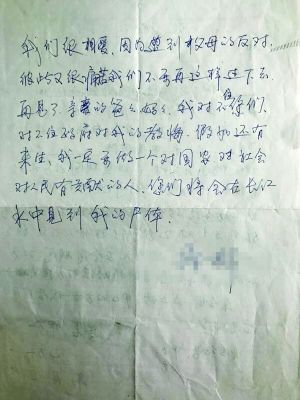 我们很相爱，因为遭到父母的反对，
彼此又很痛苦我们不要再这样过下去
再见了亲爱的爸爸妈妈我对不起你们，
对不住政府对我的教悔，假如还有
来生，我一定要做一个对国家对社会
对人民有贡献的人。你们将会在长江
水中见到我的尸体．